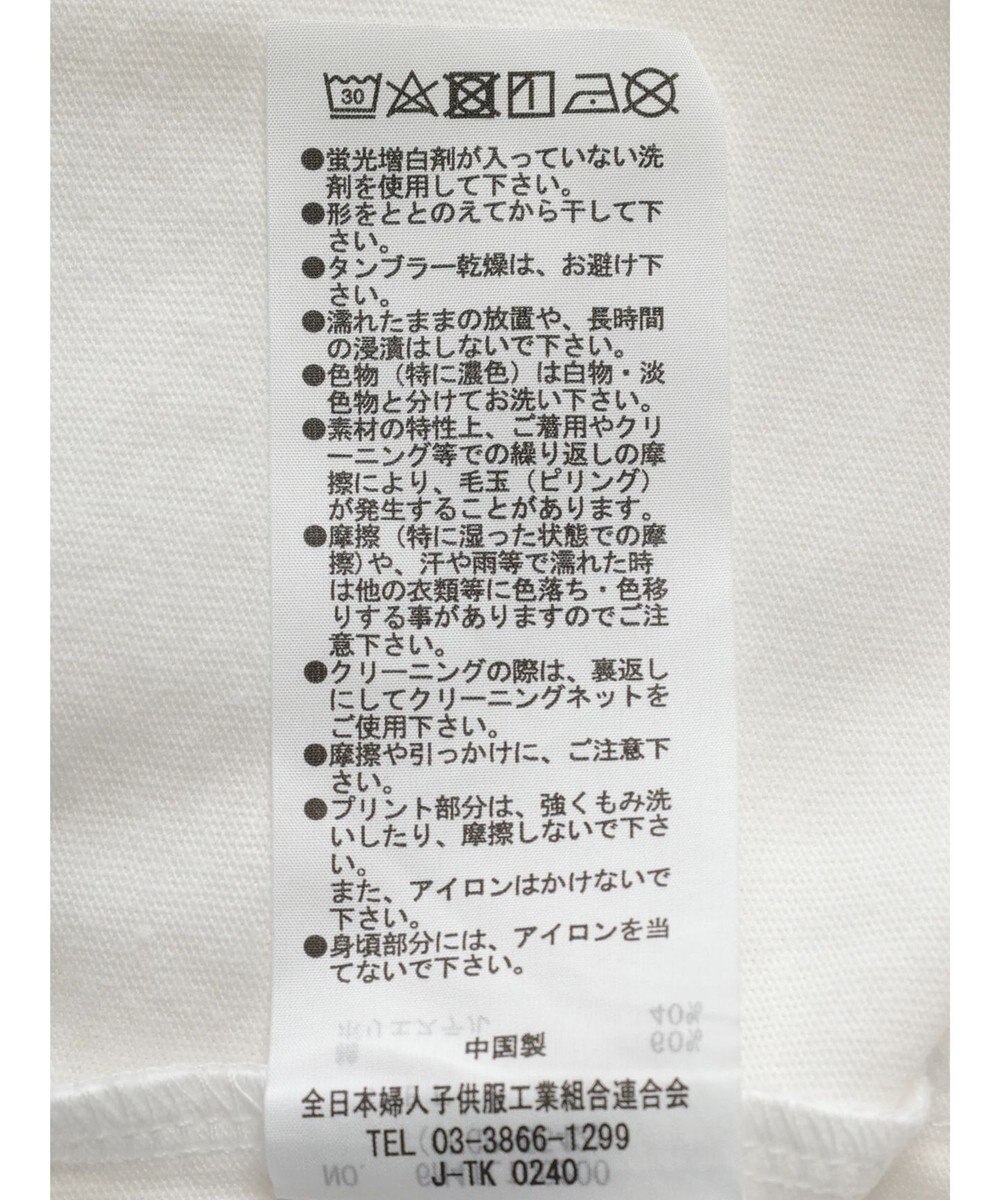 30
●蛍光増白剤が入っていない洗
剤を使用して下さい。
●形をととのえてから干して下
さい。
●タンブラー乾燥は、お避け下
さい。
●濡れたままの放置や、長時間
の浸漬はしないで下さい。
●色物（特に濃色）は白物・淡
色物と分けてお洗い下さい。
●素材の特性上、ご着用やクリ
ーニング等での繰り返しの摩
擦により、毛玉（ピリング）
が発生することがあります。
●摩擦（特に湿った状態での摩
擦)や、汗や雨等で濡れた時
は他の衣類等に色落ち・色移
りする事がありますのでご注
意下さい。
●クリーニングの際は、裏返し
にしてクリーニングネットを
ご使用下さい。
●摩擦や引っかけに、ご注意下
さい。
●プリント部分は、強くもみ洗
いしたり、摩擦しないで下さ
い。
また、アイロンはかけないで
下さい。
●身頃部分には、アイロンを当
てないで下さい。
ポリエステル 40%
綿 60%
中国製
全日本婦人子供服工業組合連合会
TEL 03-3866-1299
J-TK 0240
NO.